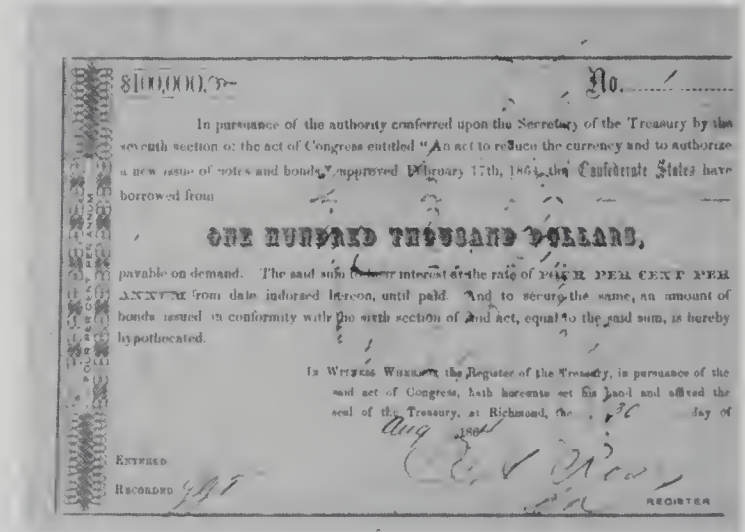 $100,000.00 No. 1
In pursuance of the authority conferred upon the Secretary of the Treasury by the
seventh section of the act of Congress entitled "An act to reduce the currency and to authorize
a new issue of notes and bonds," approved February 17th, 1864, the Confederate States have
borrowed from
ONE HUNDRED THOUSAND DOLLARS,
payable on demand. The said sum to bear interest at the rate of FOUR PER CENT PER
ANNUM from date indorsed hereon, until paid. And to secure the same, an amount of
bonds issued in conformity with the sixth section of said act, equal to the said sum, is hereby
hypothecated.
In Witness Whereof, the Register of the Treasury, in pursuance of the
said act of Congress, hath hereunto set his hand and affixed the
seal of the Treasury, at Richmond, the 30 day of
Aug 1864
ENTERED
RECORDED
REGISTER
FOUR PER CENT PER ANNUM